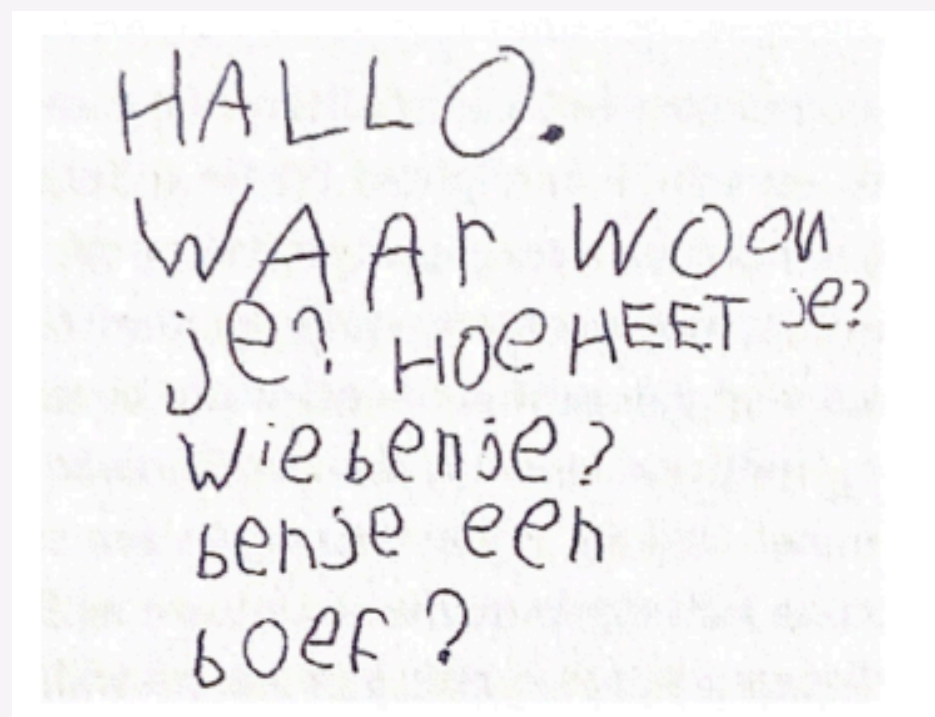 HALLO.
WAAr WOon
je? HOe HEET je?
wie benje?
benje een
boef?